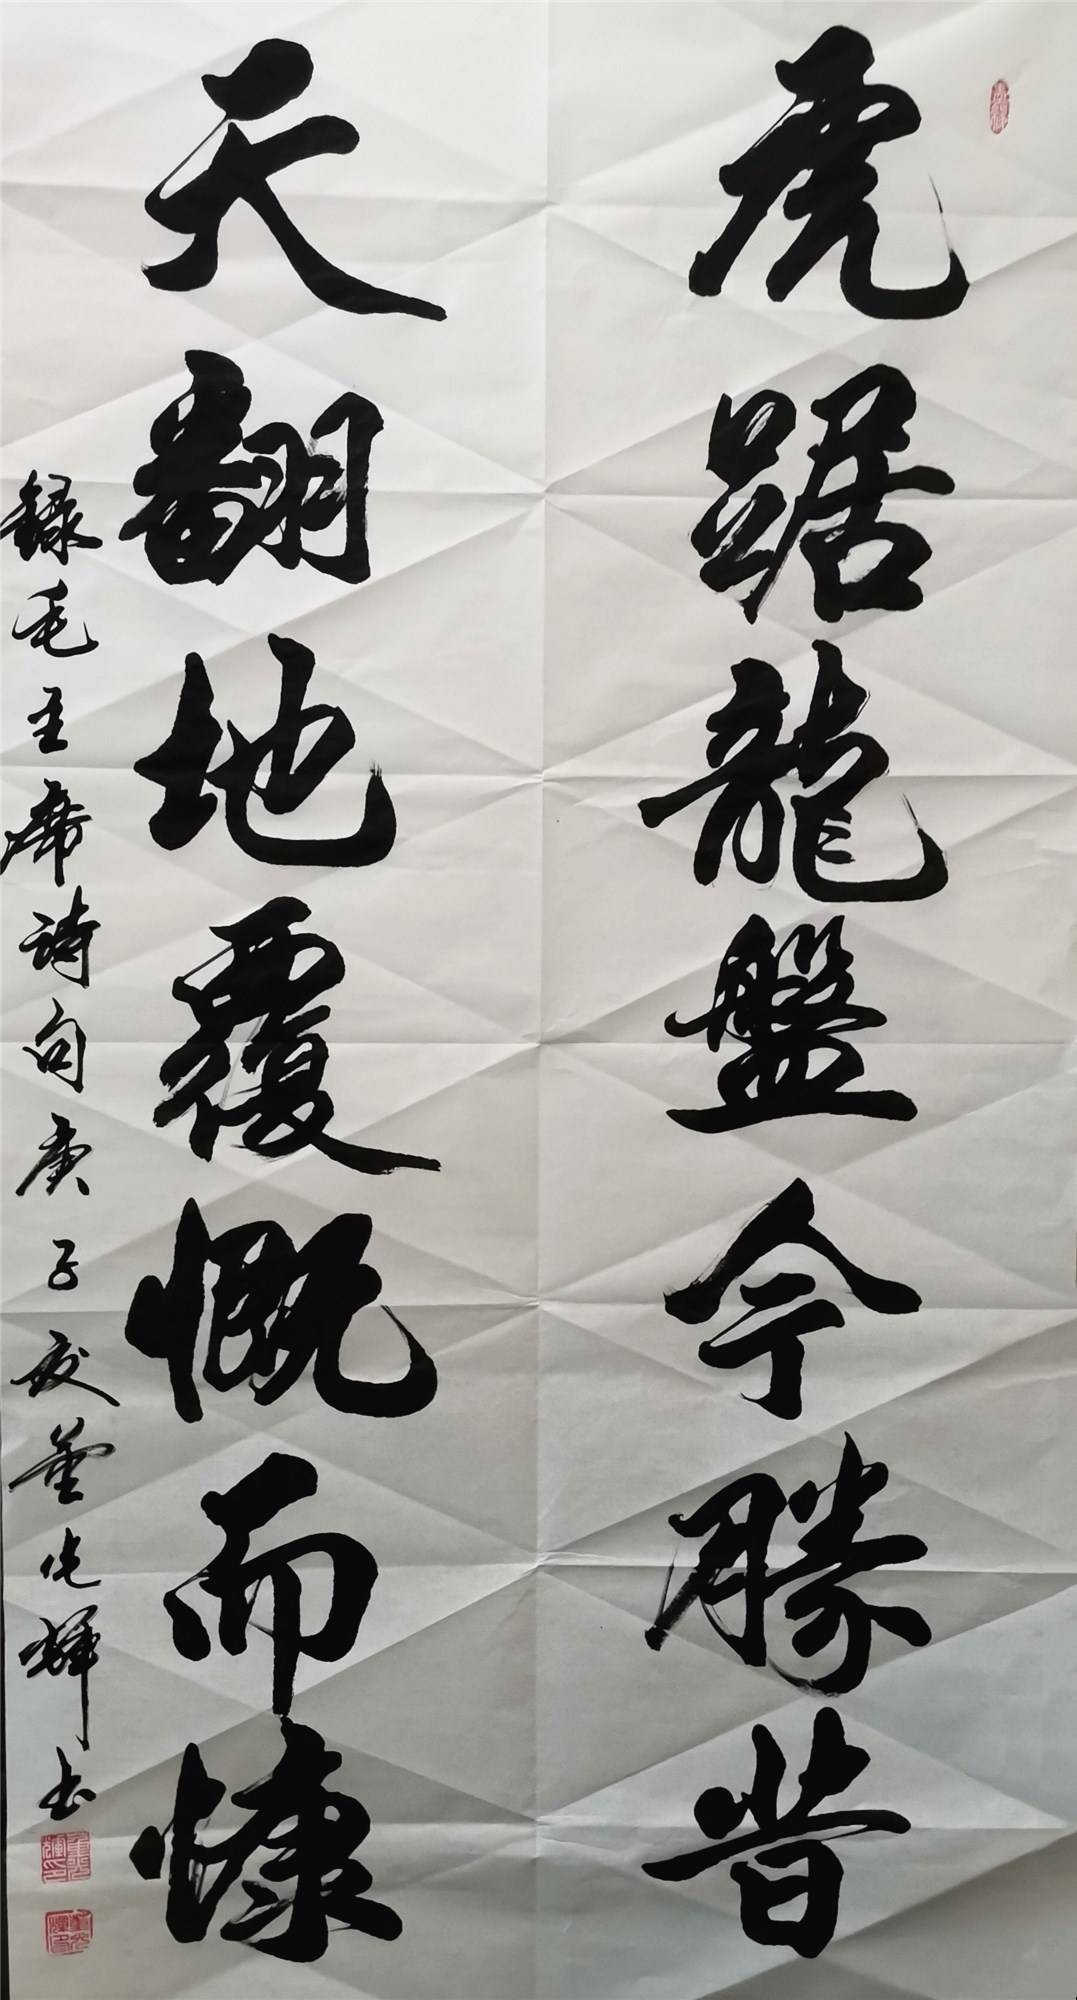 虎踞龍盤今勝昔
天翻地覆慨而慷
錄毛主席詩句庚子夏董光輝书